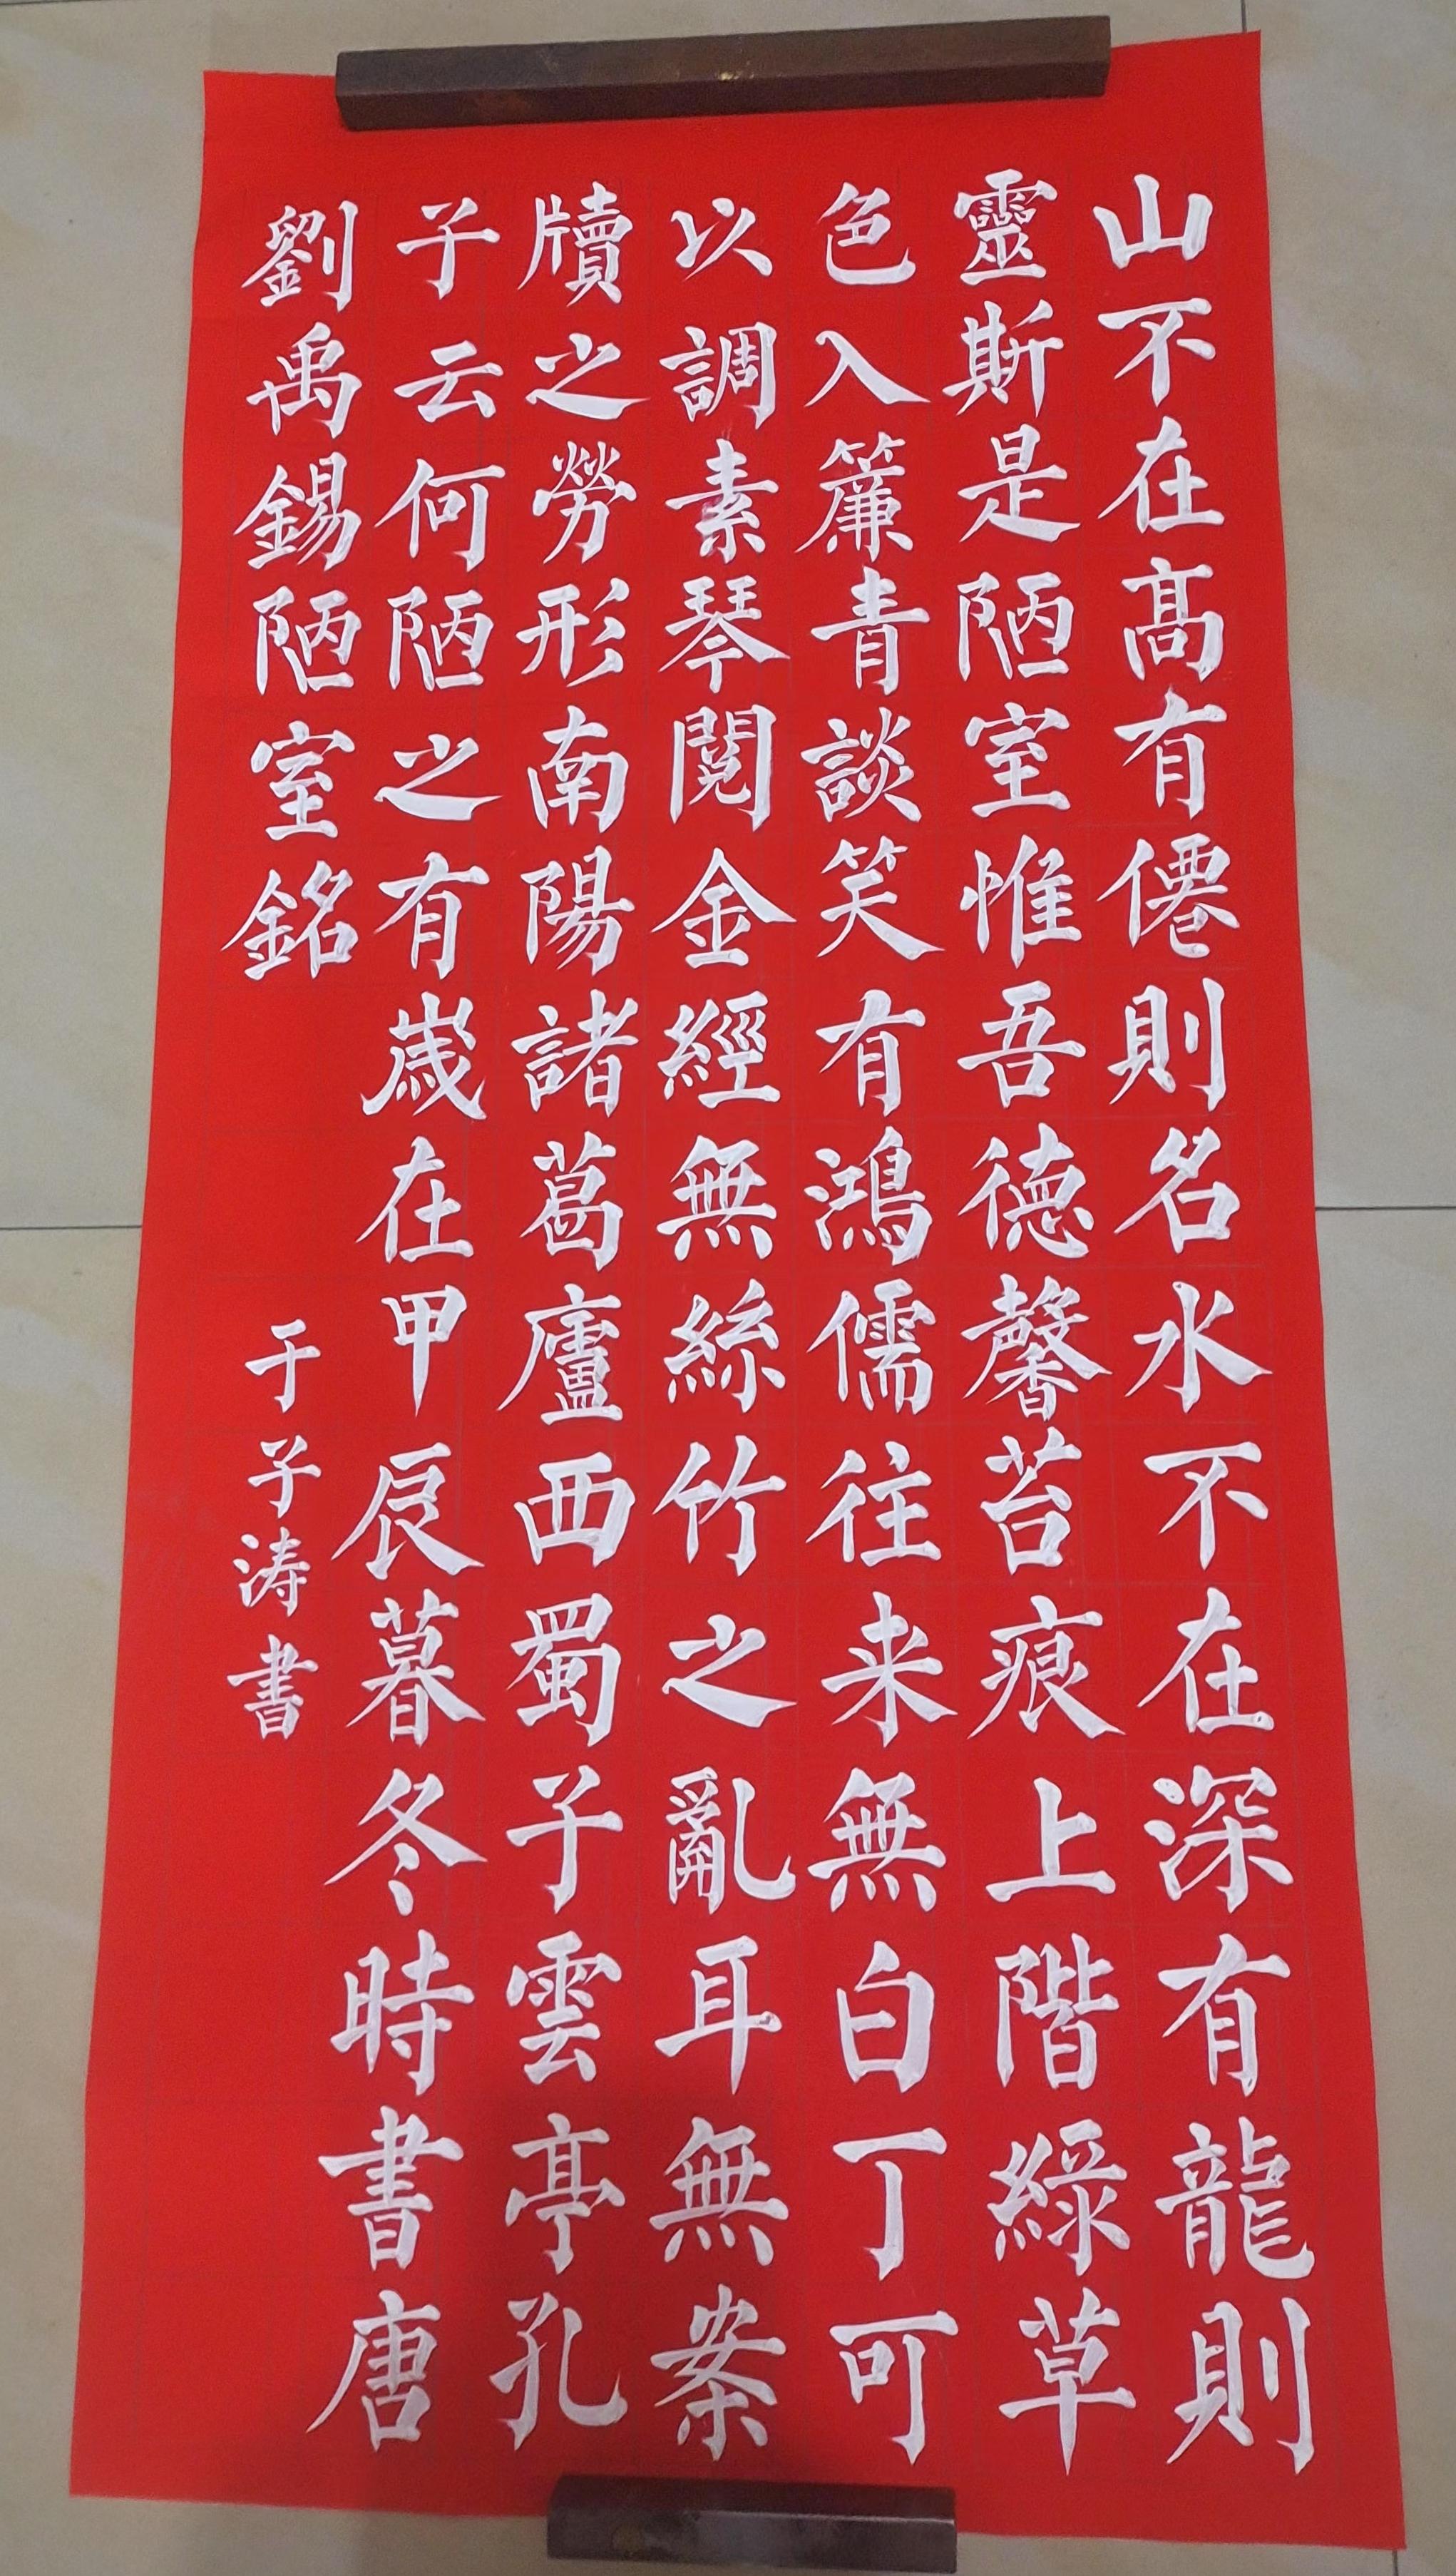 山不在高有僊則名水不在深有龍則
靈斯是陋室惟吾德馨苔痕上階綠草
色入簾青談笑有鴻儒往来無白丁可
以調素琴閱金經無絲竹之亂耳無案
牘之勞形南陽諸葛廬西蜀子雲亭孔
子云何陋之有歲在甲辰暮冬時書唐
劉禹錫陋室銘
于子涛書